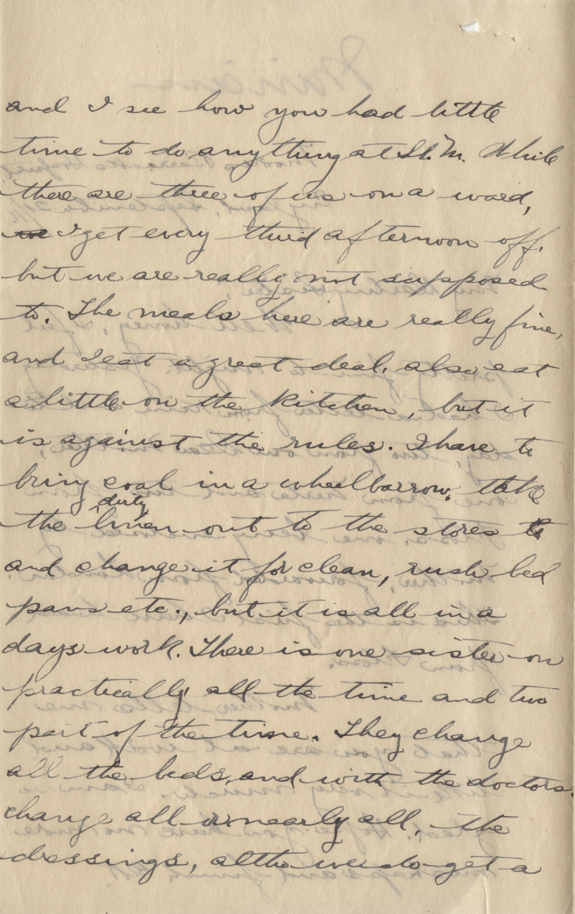 and I see how you had little
time to do anything at St. M. While
there are three of us on a ward,
I get every third afternoon off.
but we are really not supposed
to. The meals here are really fine,
and I eat a great deal. also eat
a little on the kitchen, but it
is against the rules. I have to
bring coal in a wheelbarrow, take
dirty
the linen out to the stores to
and change it for clean, rush bed
pans etc., but it is all in a
days work. There is one sister on
practically all the time and two
part of the time. They change
all the beds, and with the doctors
change all or nearly all, the
dressings, altho we do get a